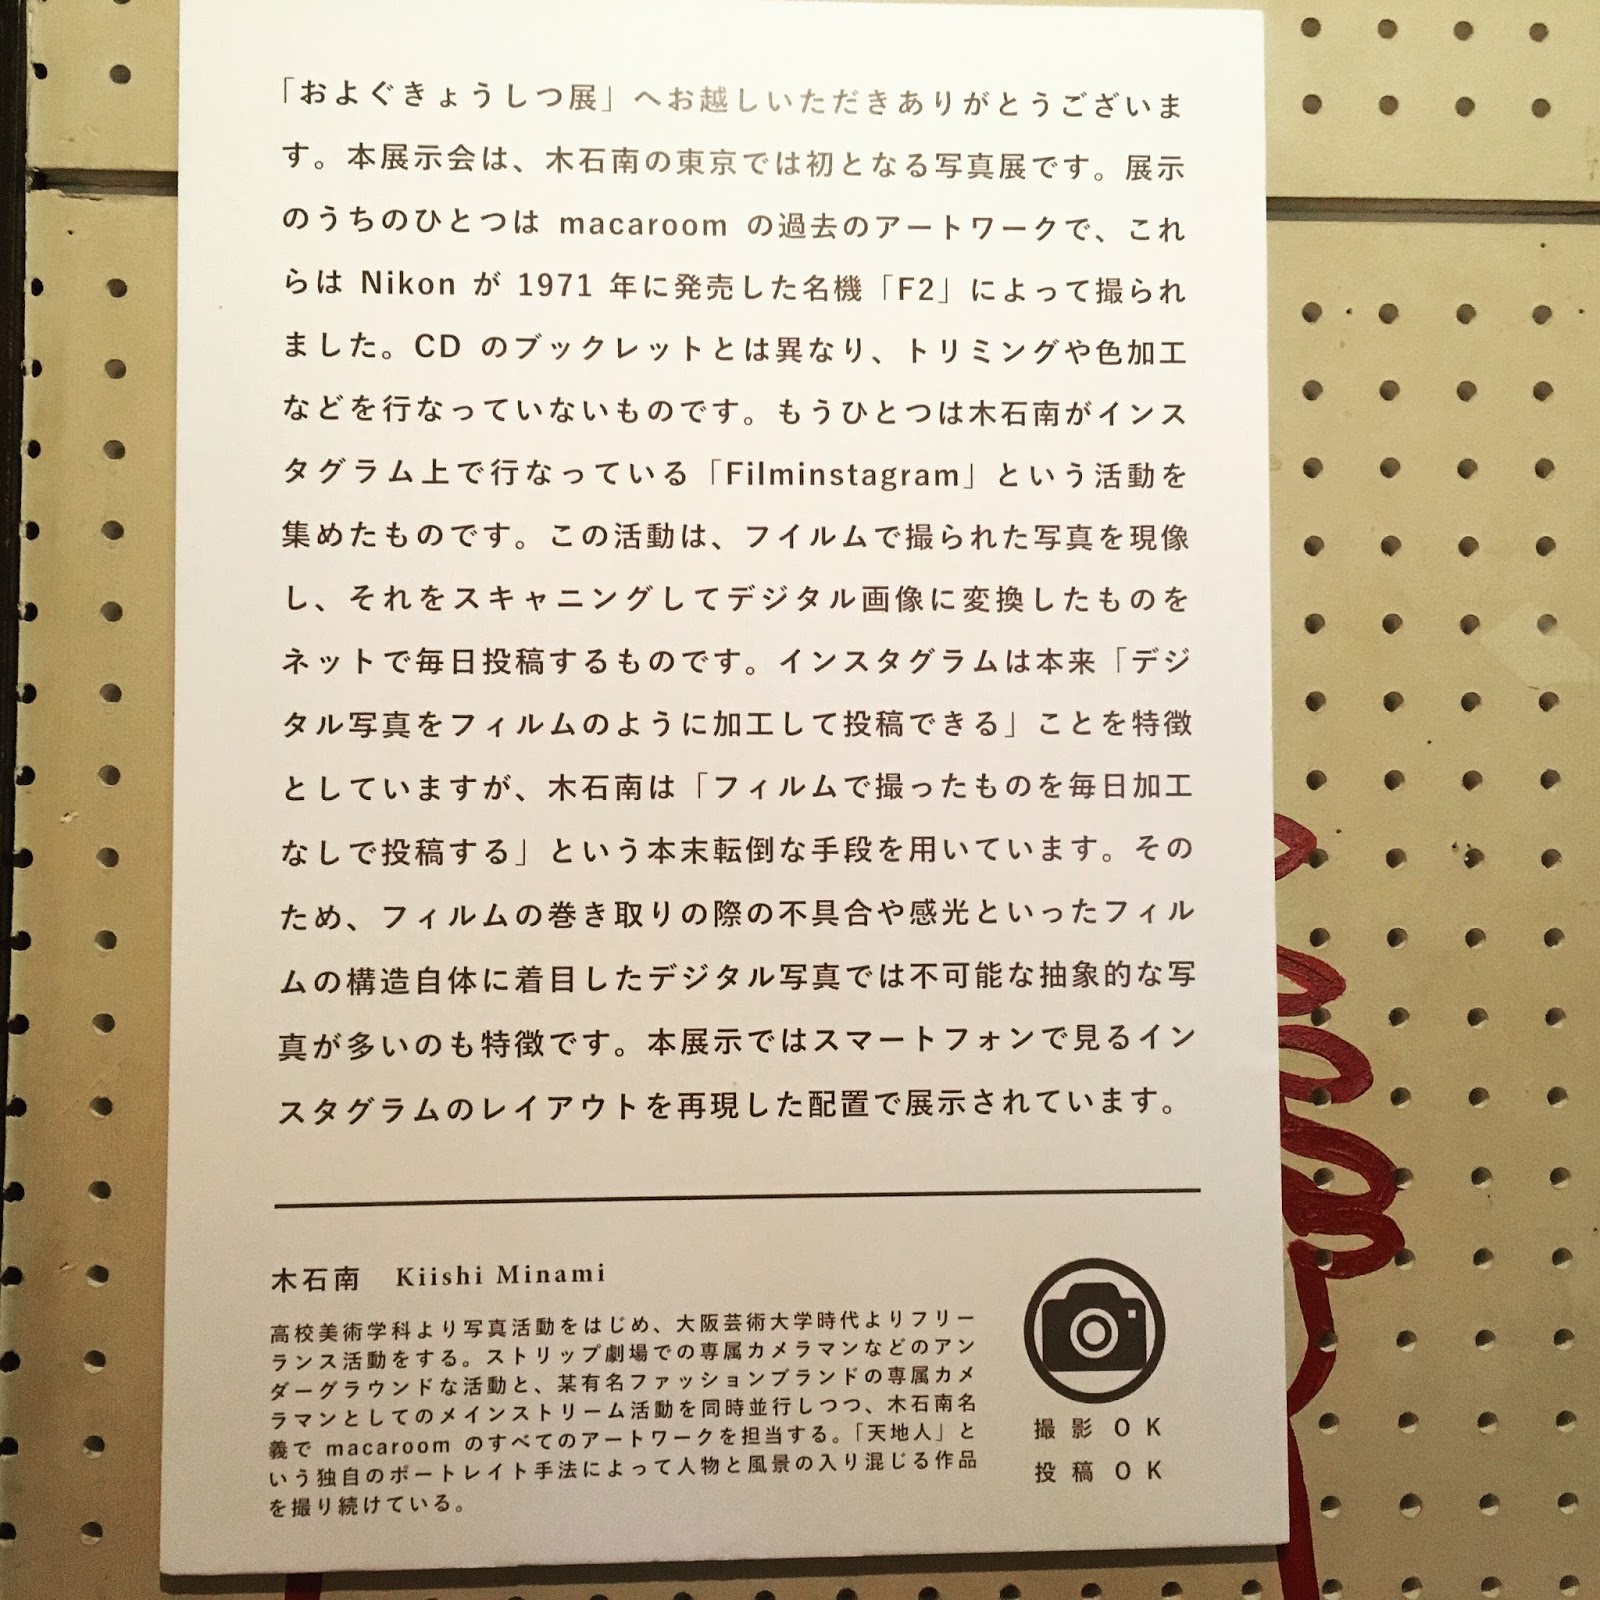 「およぐきょうしつ展」へお越しいただきありがとうございま
す。本展示会は、木石南の東京では初となる写真展です。展示
のうちのひとつは macaroom の過去のアートワークで、これ
らは Nikon が 1971 年に発売した名機「F2」によって撮られ
ました。CD のブックレットとは異なり、トリミングや色加工
などを行なっていないものです。もうひとつは木石南がインス
タグラム上で行なっている「Filminstagram」という活動を
集めたものです。この活動は、フイルムで撮られた写真を現像
し、それをスキャニングしてデジタル画像に変換したものを
ネットで毎日投稿するものです。インスタグラムは本来「デジ
タル写真をフィルムのように加工して投稿できる」ことを特徴
としていますが、木石南は「フィルムで撮ったものを毎日加工
なしで投稿する」という本末転倒な手段を用いています。その
ため、フィルムの巻き取りの際の不具合や感光といったフィル
ムの構造自体に着目したデジタル写真では不可能な抽象的な写
真が多いのも特徴です。本展示ではスマートフォンで見るイン
スタグラムのレイアウトを再現した配置で展示されています。
木石南 Kiishi Minami
高校美術学科より写真活動をはじめ、大阪芸術大学時代よりフリー
ランス活動をする。ストリップ劇場での専属カメラマンなどのアン
ダーグラウンドな活動と、某有名ファッションブランドの専属カメ
ラマンとしてのメインストリーム活動を同時並行しつつ、木石南名
義で macaroom のすべてのアートワークを担当する。「天地人」と
いう独自のポートレイト手法によって人物と風景の入り混じる作品
を撮り続けている。
撮影OK
投稿OK